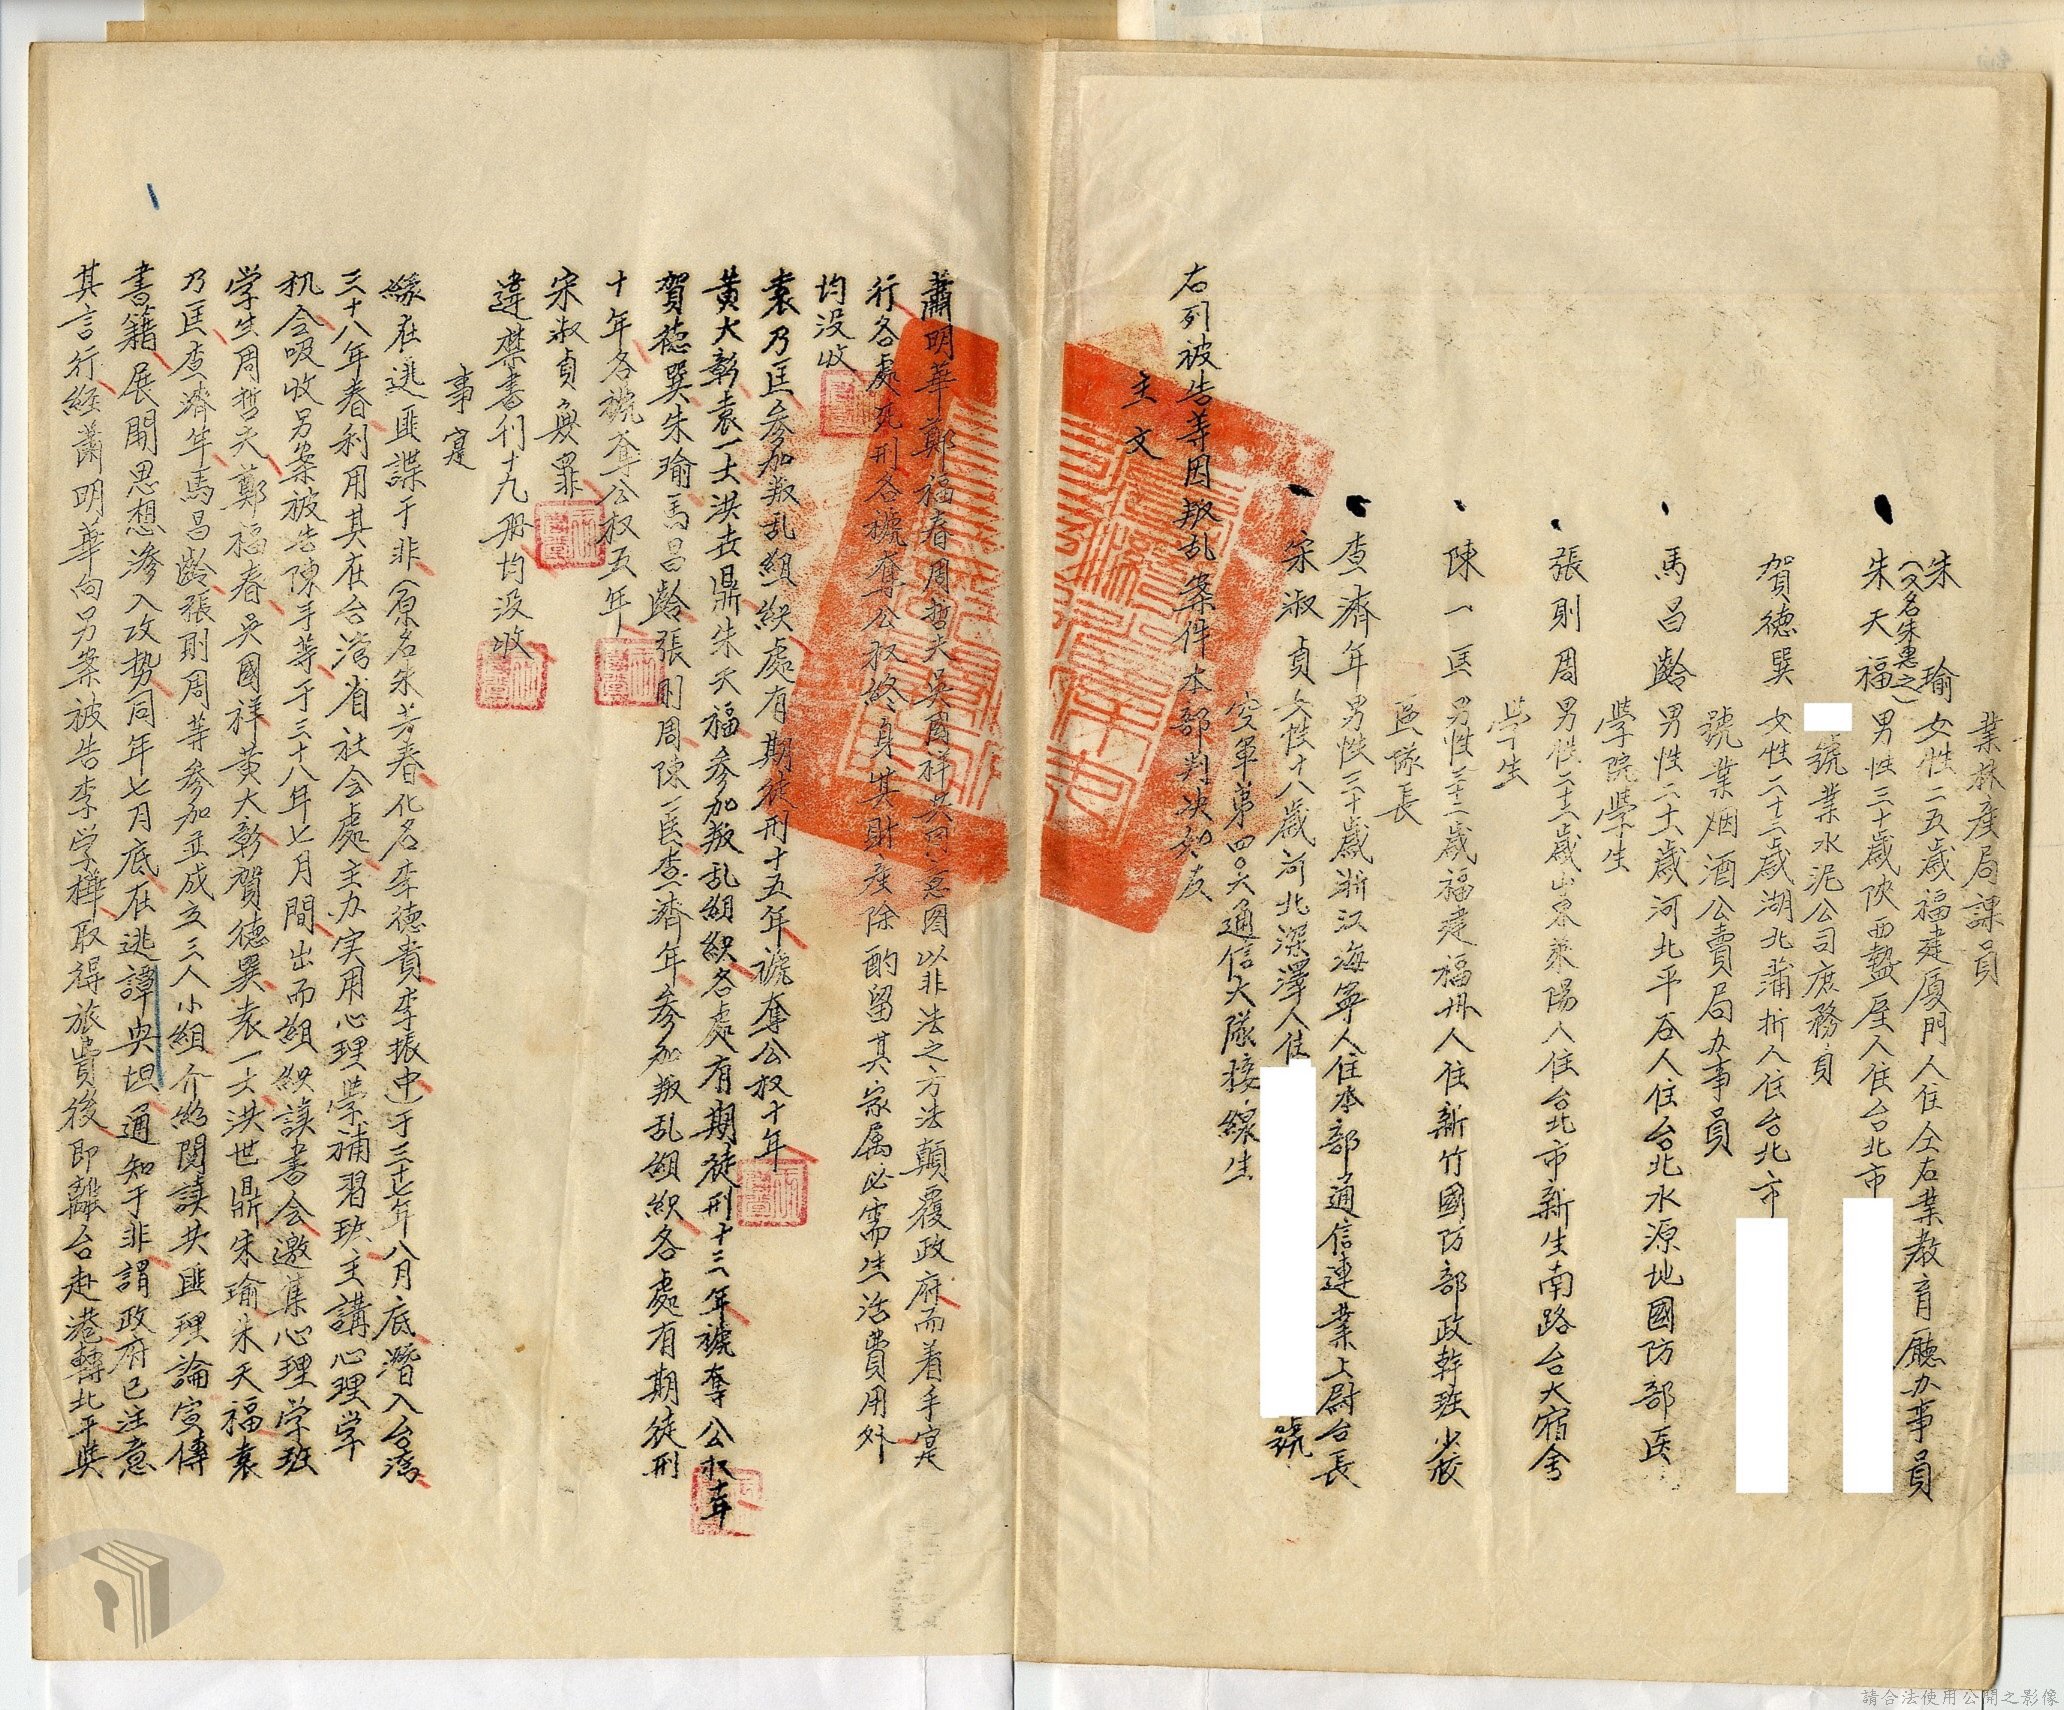 業林產局課員
朱 瑜 女性二五歲福建廈門人住仝右業教育廳办事員
(又名朱惠之)
朱天福 男性三十歲陝西盩厔人住台北市
號業水泥公司庶務員
賀德巽 女性二十三歲湖北蒲圻人住台北市
號業烟酒公賣局办事員
馬昌齡 男性二十六歲河北平谷人住台北水源地國防部医
學院學生
張則周 男性二十三歲山東萊陽人住台北市新生南路台大宿舍
學生
陳一匡 男性三十二歲福建福州人住新竹國防部政幹班少校
區隊長
查濟年 男性三十歲浙江海寧人住本部通信連業上尉台長
宋淑貞 女性十八歲河北深澤人住 號
空軍第四〇六通信大隊接線生
右列被告等因叛乱案件本部判決如左
主文
蕭明華鄭福春周哲夫吳國祥共同意图以非法之方法顛覆政府而着手寔
行各處死刑各褫奪公权終身其財產除酌留其家属必需生活費用外
均没收
袁乃匡參加叛乱組織處有期徒刑十五年褫奪公权十年
黃大彰袁一士洪世鼎朱天福參加叛乱組織各處有期徒刑十三年褫奪公权十年
賀德巽朱瑜馬昌齡張則周陳一匡查濟年參加叛乱組織各處有期徒刑
十年各褫奪公权五年
宋淑貞無罪
違禁書刊十九册均没收
事寔
緣在逃匪諜于非(原名朱芳春化名李德貴李振中)于三十七年八月底潛入台湾
三十八年春利用其在台湾省社会處主办实用心理學補習班主講心理学
机会吸收另案被告陳手等于三十八年七月間出而組織讀書会邀集心理学班
学生周哲夫鄭福春吳國祥黃大彰賀德巽袁一士洪世鼎朱瑜朱天福袁
乃匡查濟年馬昌齡張則周等參加並成立三人小組介紹閱讀共匪理論宣傳
書籍展開思想滲入攻势同年七月底在逃譚奥坦通知于非謂政府已注意
其言行經蕭明華向另案被告李学樺取得旅費後即離台赴港轉北平與
請合法使用公開之影像